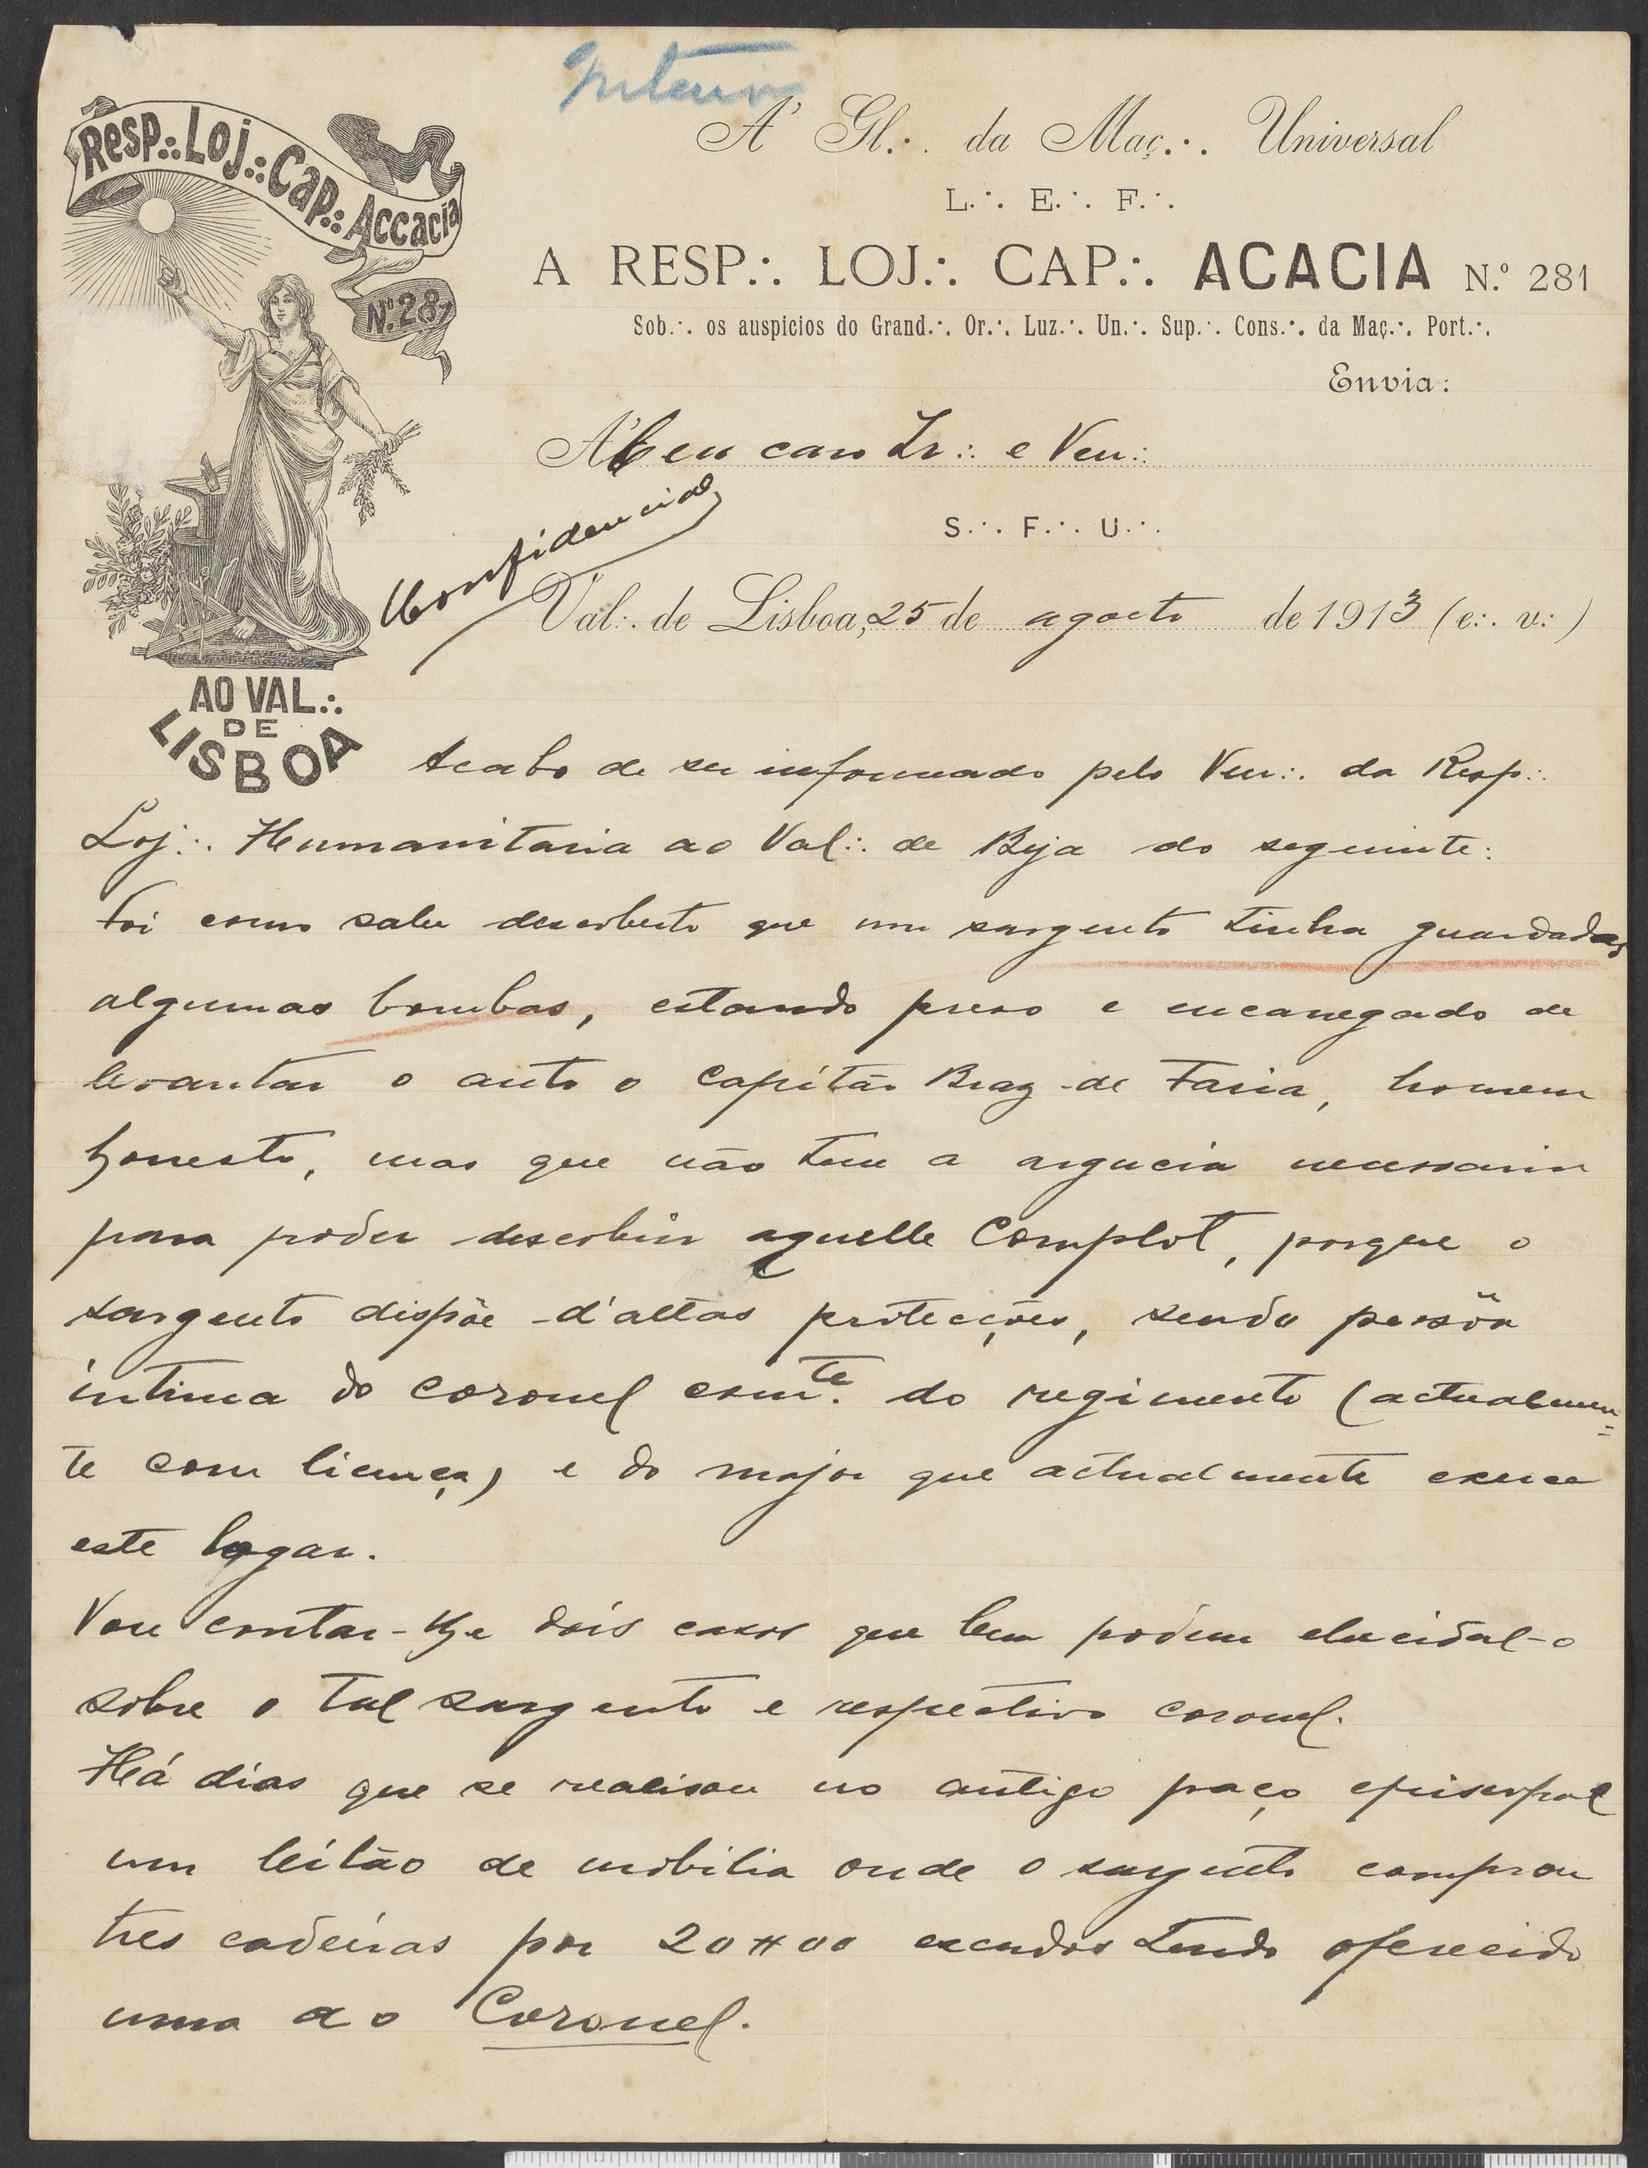 Interior
Resp∴ Loj∴ Cap∴ Accacia
Nº 281
AO VAL∴
DE
LISBOA
A' Gl∴ da Maç∴ Universal
L∴ E∴ F∴
A RESP∴ LOJ∴ CAP∴ ACACIA N.º 281
Sob∴ os auspicios do Grand∴ Or∴ Luz∴ Un∴ Sup∴ Cons∴ da Maç∴ Port∴
Envia:
A' Meu caro Ir∴ e Ven∴
S∴ F∴ U∴
Confidencial
Val∴ de Lisboa, 25 de agosto de 1913 (e∴ v∴)
Acabo de ser informado pelo Ven∴ da Resp∴
Loj∴ Humanitaria ao Val∴ de Beja do seguinte:
Foi como sabe descoberto que um sargento tinha guardadas
algumas bombas, estando preso e encarregado de
levantar o auto o capitão Braz de Faria, homem
honesto, mas que não tem a argucia necessaria
para poder descobrir aquelle Complot, porque o
sargento dispõe d'altas protecções, sendo pessôa
intima do coronel com.te do regimento (actualmen=
te com licença) e do major que actualmente exerce
este logar.
Vou contar-lhe dois casos que bem podem elucidal-o
sobre o tal sargento e respectivo coronel.
Há dias que se realisou no antigo paço episcopal
um leilão de mobilia onde o sargento comprou
tres cadeiras por 20#00 escudos tendo oferecido
uma ao Coronel.